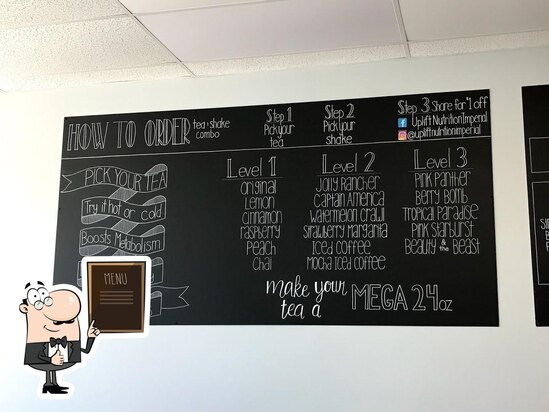 HOW TO ORDER
tea + shake
combo
Step 1
Pick your
tea
Step 2
Pick your
shake
Step 3 Share for $1 off
Uplift Nutrition Imperial
@upliftnutritionimperial
PICK YOUR TEA
Try it hot or cold
Boosts Metabolism
Level 1
original
Lemon
Cinnamon
raspberry
Peach
Chai
Level 2
Jolly Rancher
Captain America
Watermelon Crawl
Strawberry Margarita
Iced Coffee
Mocha Iced Coffee
Level 3
Pink Panther
Berry Bomb
Tropical Paradise
Pink Starburst
Beauty & the Beast
make your
tea a
MEGA 24oz
MENU